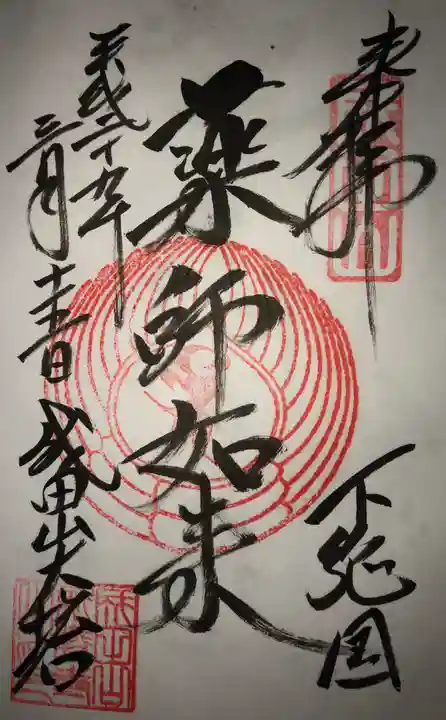 奉拝
下総国
薬師如来
平成二十九年
三月十春日
成田山大塔